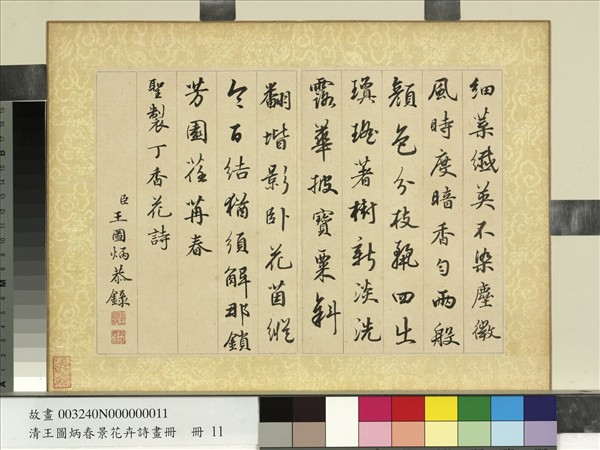 細葉纖英不染塵微
風時度暗香勻兩般
顏色分枝艷四出
瓊瑤著樹新淡洗
露華披寶粟斜
翻堦影臥花茵縱
令百結猶須解那鎖
芳園荏苒春
聖製丁香花詩
臣王圖炳恭錄
故畫 003240N000000011
清王圖炳春景花卉詩畫冊 冊 11